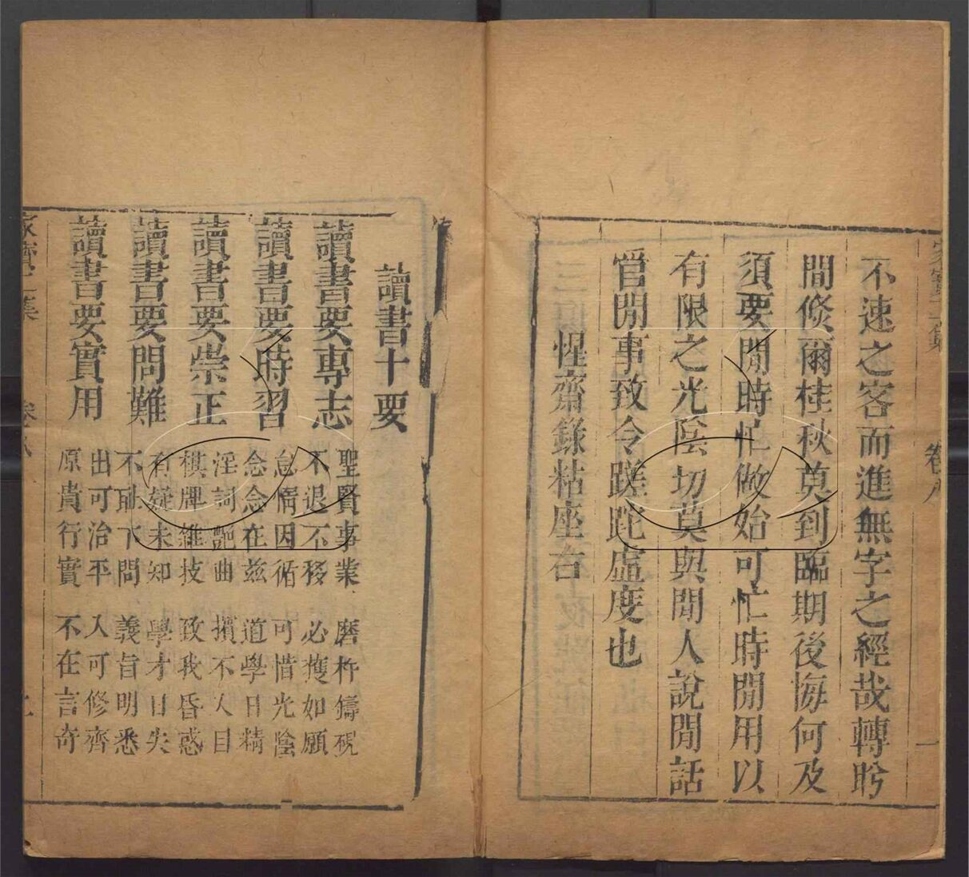 不速之客而進無字之經哉轉盻
間倐爾桂秋莫到臨期後悔何及
須要閒時忙做始可忙時閒用以
有限之光陰切莫與閒人說閒話
管閒事致令蹉跎虛度也
惺齋錄粘座右
卷八
一
讀書十要
讀書要專志
聖賢事業 磨杵鑄硯
不退不移 必擭如願
讀書要時習
怠惰因循 可惜光陰
念念在兹 道學日精
讀書要崇正
淫詞艷曲 摈不入目
棋牌雜技 致我昏惑
讀書要問難
有疑未知 學才日失
不耻下問 義旨明悉
讀書要實用
出可治平 入可修齊
原貴行實 不在言奇